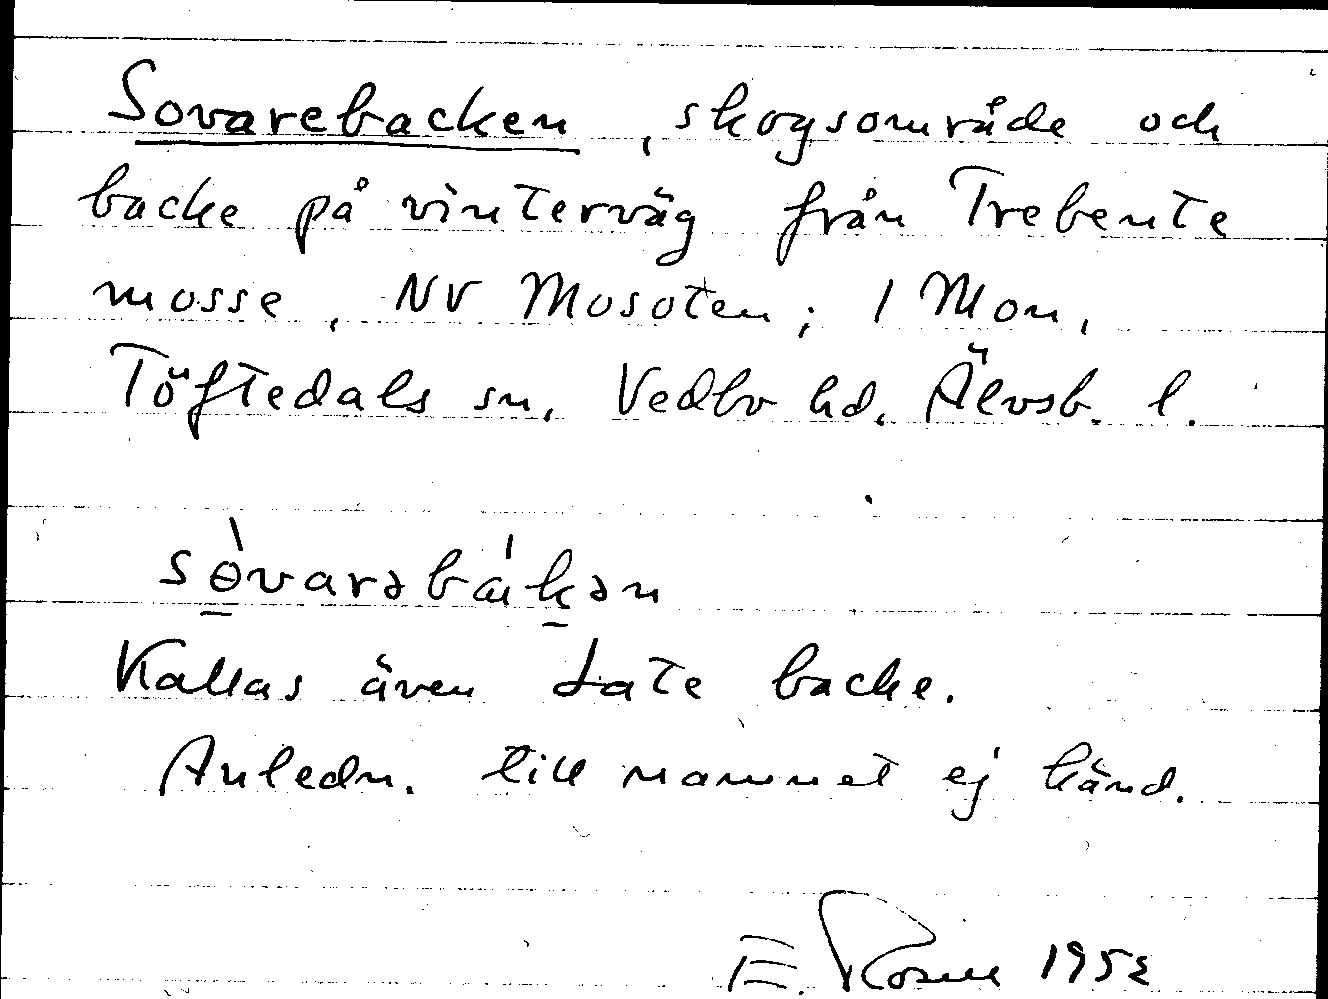 Sovarebacken, skogsområde och
backe på vinterväg från Trebente
mosse, NV Mosoten; 1 Mon,
Töftedals sn, Vedbo hd, Älvsb. l.
sòvarəbákən
Kallas även Late backe.
Anledn. till namnet ej känd.
E. 1952